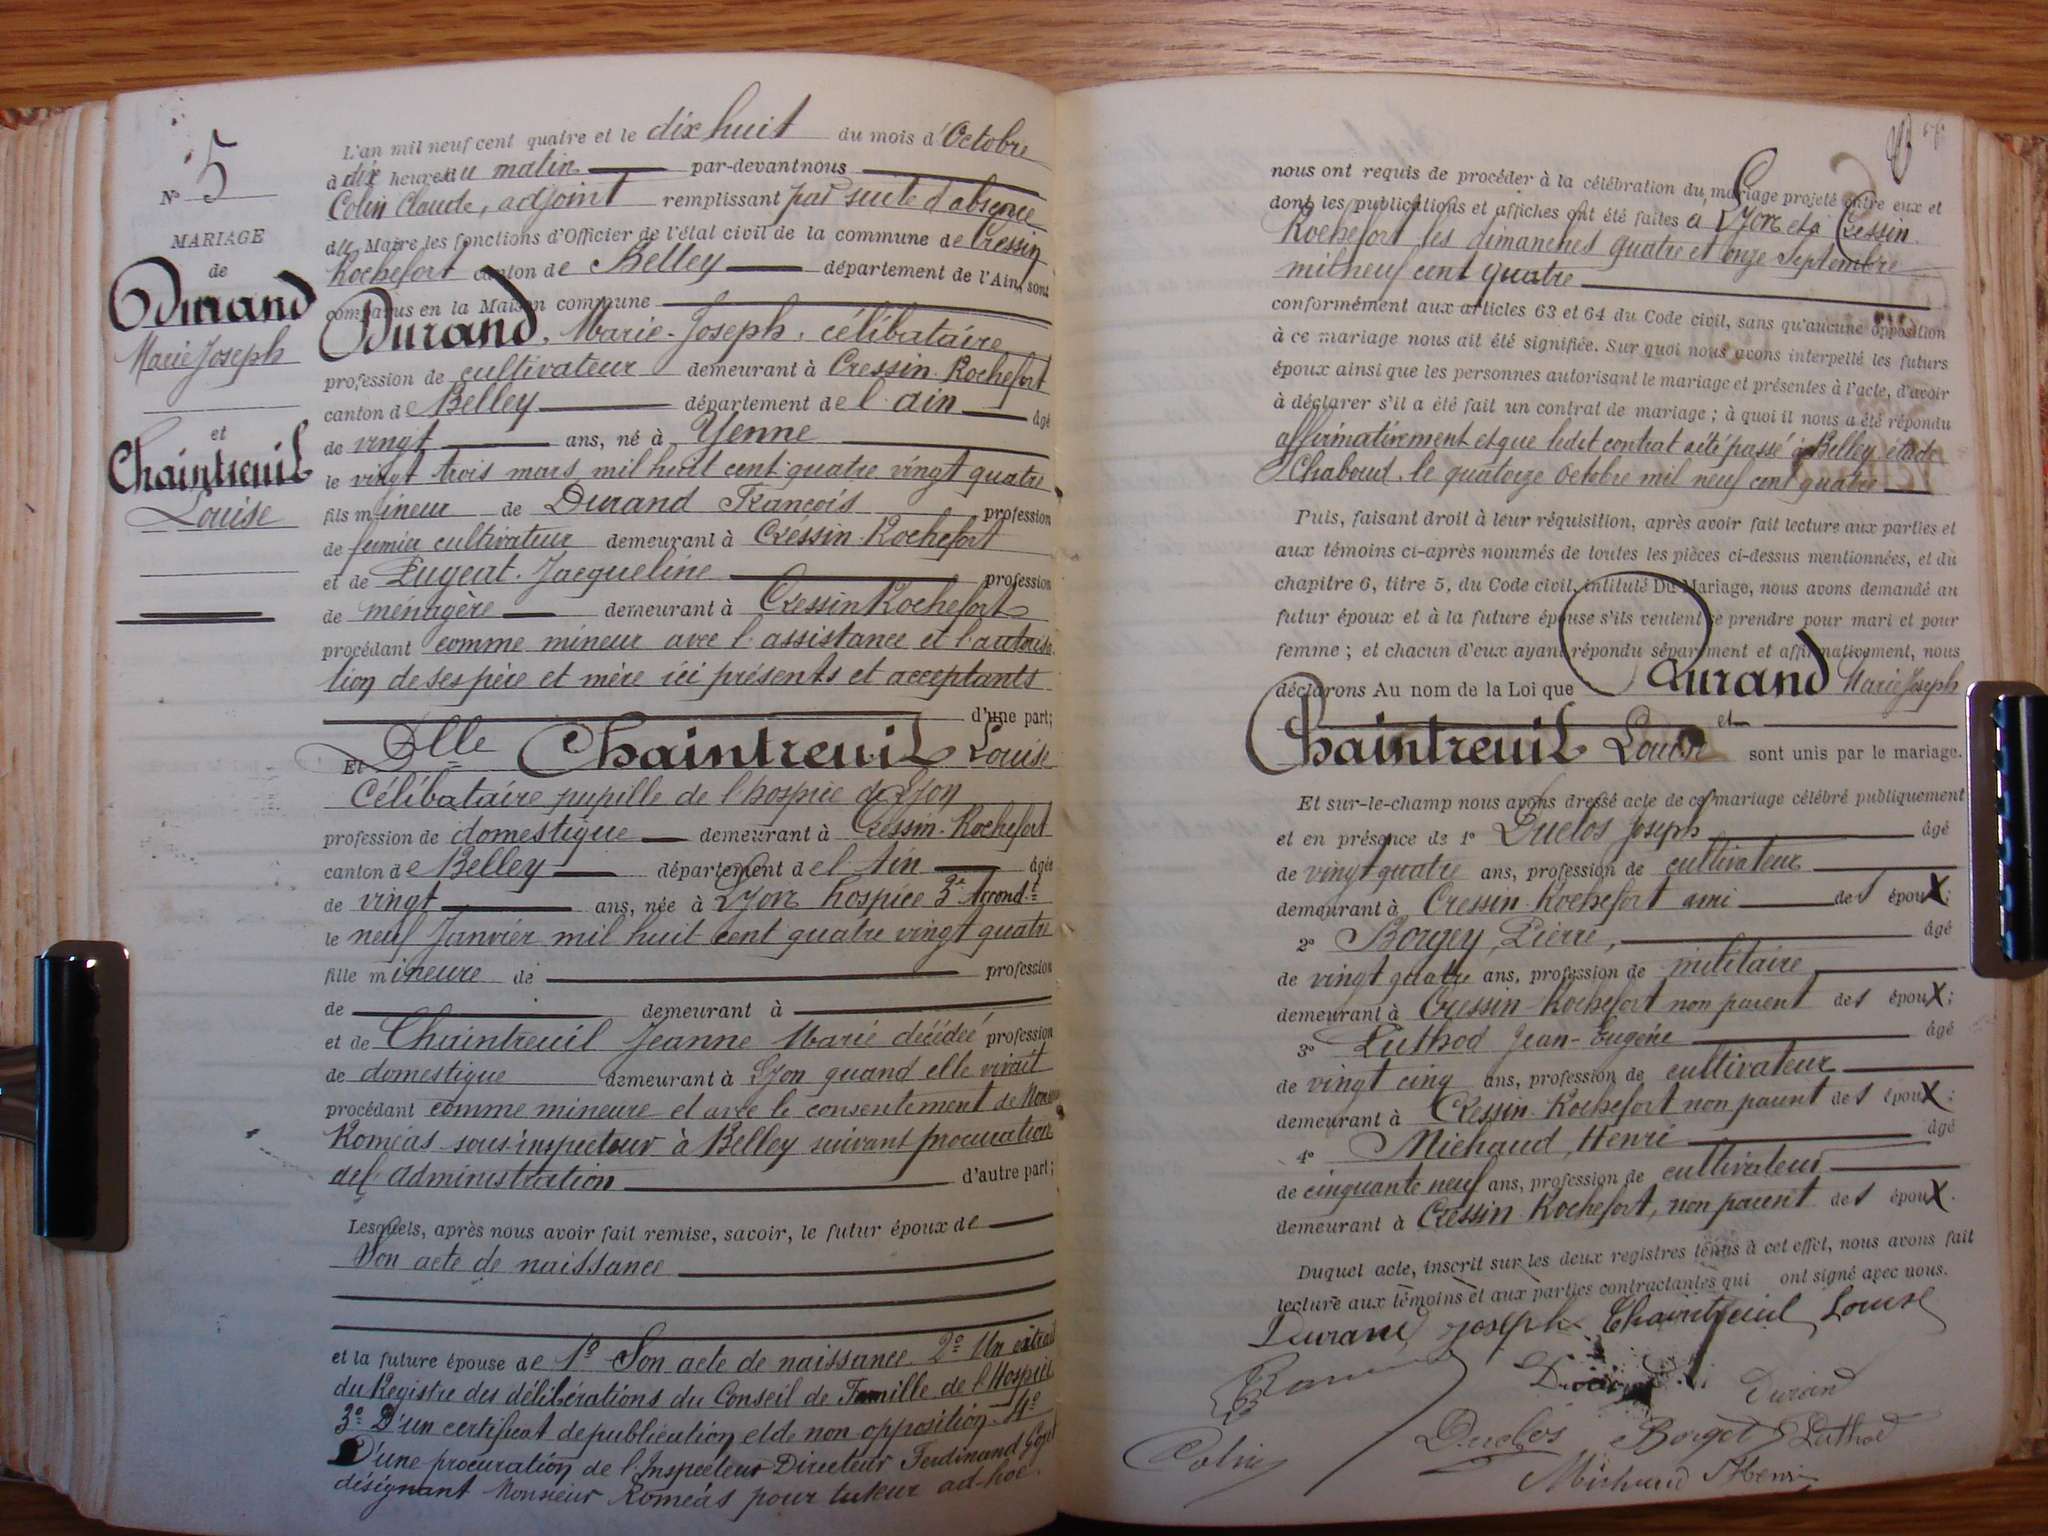 N° 5
MARIAGE
de
Durand
Marie Joseph
et
Chaintreuil
Louise
L'an mil neuf cent quatre et le dix huit du mois d'Octobre
à dix heures du matin par-devant nous
Colin Claude, adjoint remplissant par suite d'absence
du Maire les fonctions d'Officier de l'état civil de la commune de Cressin
Rochefort canton de Belley département de l'Ain, sont
comparus en la Maison commune
Durand, Marie-Joseph, célibataire
profession de cultivateur demeurant à Cressin-Rochefort
canton de Belley département de l'ain âgé
de vingt ans, né à Yenne
le vingt trois mars mil huit cent quatre vingt quatre
fils mineur de Durand François profession
de fermier cultivateur demeurant à Cressin-Rochefort
et de Pugeat Jacqueline profession
de ménagère demeurant à Cressin Rochefort
procédant comme mineur avec l'assistance et l'autorisa
tion de ses père et mère ici présents et acceptants
d'une part;
Et Dlle Chaintreuil Louise
Célibataire pupille de l'hospice de Lyon
profession de domestique demeurant à Cressin-Rochefort
canton de Belley département de l'Ain âgée
de vingt ans, née à Lyon hospice 2e Arrondt
le neuf Janvier mil huit cent quatre vingt quatre
fille mineure de profession
de demeurant à
et de Chaintreuil Jeanne Marie décédée profession
de domestique demeurant à Lyon quand elle vivait
procédant comme mineure et avec le consentement de Monsieur
Roméas sous-inspecteur à Belley suivant procuration
de l'administration d'autre part;
Lesquels, après nous avoir fait remise, savoir, le futur époux de
Son acte de naissance
et la future épouse de 1° Son acte de naissance 2° Un extrait
du Registre des délibérations du Conseil de Famille de l'Hospice
3° D'un certificat de publication et de non opposition. 4°
D'une procuration de l'Inspecteur Directeur Ferdinand
désignant Monsieur Roméas pour tuteur ad-hoc.
nous ont requis de procéder à la célébration du mariage projeté entre eux et
dont les publications et affiches ont été faites à Lyon et à Cressin
Rochefort les dimanches quatre et onze Septembre
mil neuf cent quatre
conformément aux articles 63 et 64 du Code civil, sans qu'aucune opposition
à ce mariage nous ait été signifiée. Sur quoi nous avons interpellé les futurs
époux ainsi que les personnes autorisant le mariage et présentes à l'acte, d'avoir
à déclarer s'il a été fait un contrat de mariage; à quoi il nous a été répondu
affirmativement et que ledit contrat a été passé à Belley étude
Chaboud, le quatorze Octobre mil neuf cent quatre
Puis, faisant droit à leur réquisition, après avoir fait lecture aux parties et
aux témoins ci-après nommés de toutes les pièces ci-dessus mentionnées, et du
chapitre 6, titre 5, du Code civil, intitulé Du Mariage, nous avons demandé au
futur époux et à la future épouse s'ils veulent se prendre pour mari et pour
femme; et chacun d'eux ayant répondu séparément et affirmativement, nous
déclarons Au nom de la Loi que Durand Marie Joseph
et
Chaintreuil Louise sont unis par le mariage.
Et sur-le-champ nous avons dressé acte de ce mariage célébré publiquement
et en présence de 1° Duclos Joseph âgé
de vingt quatre ans, profession de cultivateur
demeurant à Cressin-Rochefort ami des époux;
2° Borgey, Pierre, âgé
de vingt quatre ans, profession de militaire
demeurant à Cressin-Rochefort non parent des époux;
3° Puthod Jean-Eugène âgé
de vingt cinq ans, profession de cultivateur
demeurant à Cressin-Rochefort non parent des époux;
4° Michaud, Henri âgé
de cinquante neuf ans, profession de cultivateur
demeurant à Cressin-Rochefort, non parent des époux.
Duquel acte, inscrit sur les deux registres tenus à cet effet, nous avons fait
lecture aux témoins et aux parties contractantes qui ont signé avec nous.
Durand Joseph Chaintreuil Louise
Durand
Duclos Borget Puthod
Colin
Michaud Henri